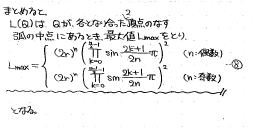 まとめると、
L(Q)は Qが、各となり合った2頂点のなす
弧の中点にあるとき、最大値 Lmaxをとり、
Lmax = { (2r)^n ( ∏_{k=0}^{n/2-1} sin (2k+1)/2n π )^2 (n:偶数)
(2r)^n ( ∏_{k=0}^{} sin (2k+1)/2n π )^2 (n:奇数)
となる。